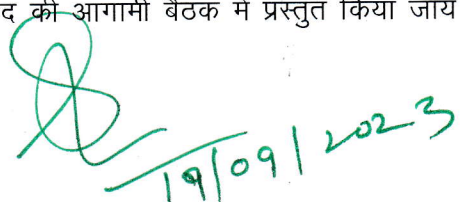 द की आगामी बैठक में प्रस्तुत किया जाय
19/09/2023